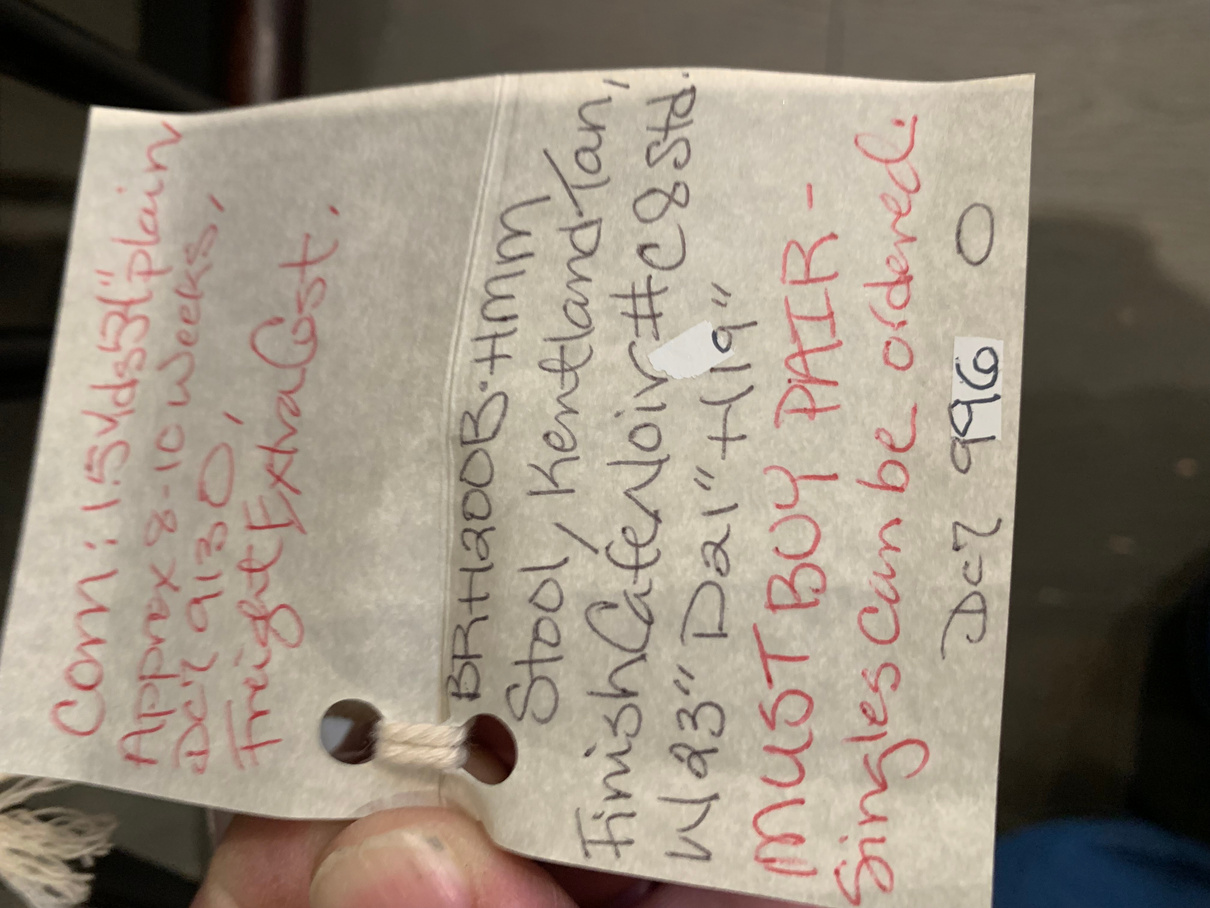 Com: 1.5 Yds 54" plain
Approx 8-10 Weeks,
Dc7 9130,
Freight Extra Cost.
BRH200B-HMM
Stool, Kentland Tan,
Finish Cafe Noir #C8 Std.
W 23" D 21" H 19"
MUST BUY PAIR -
Singles can be ordered.
Dc7 996 0